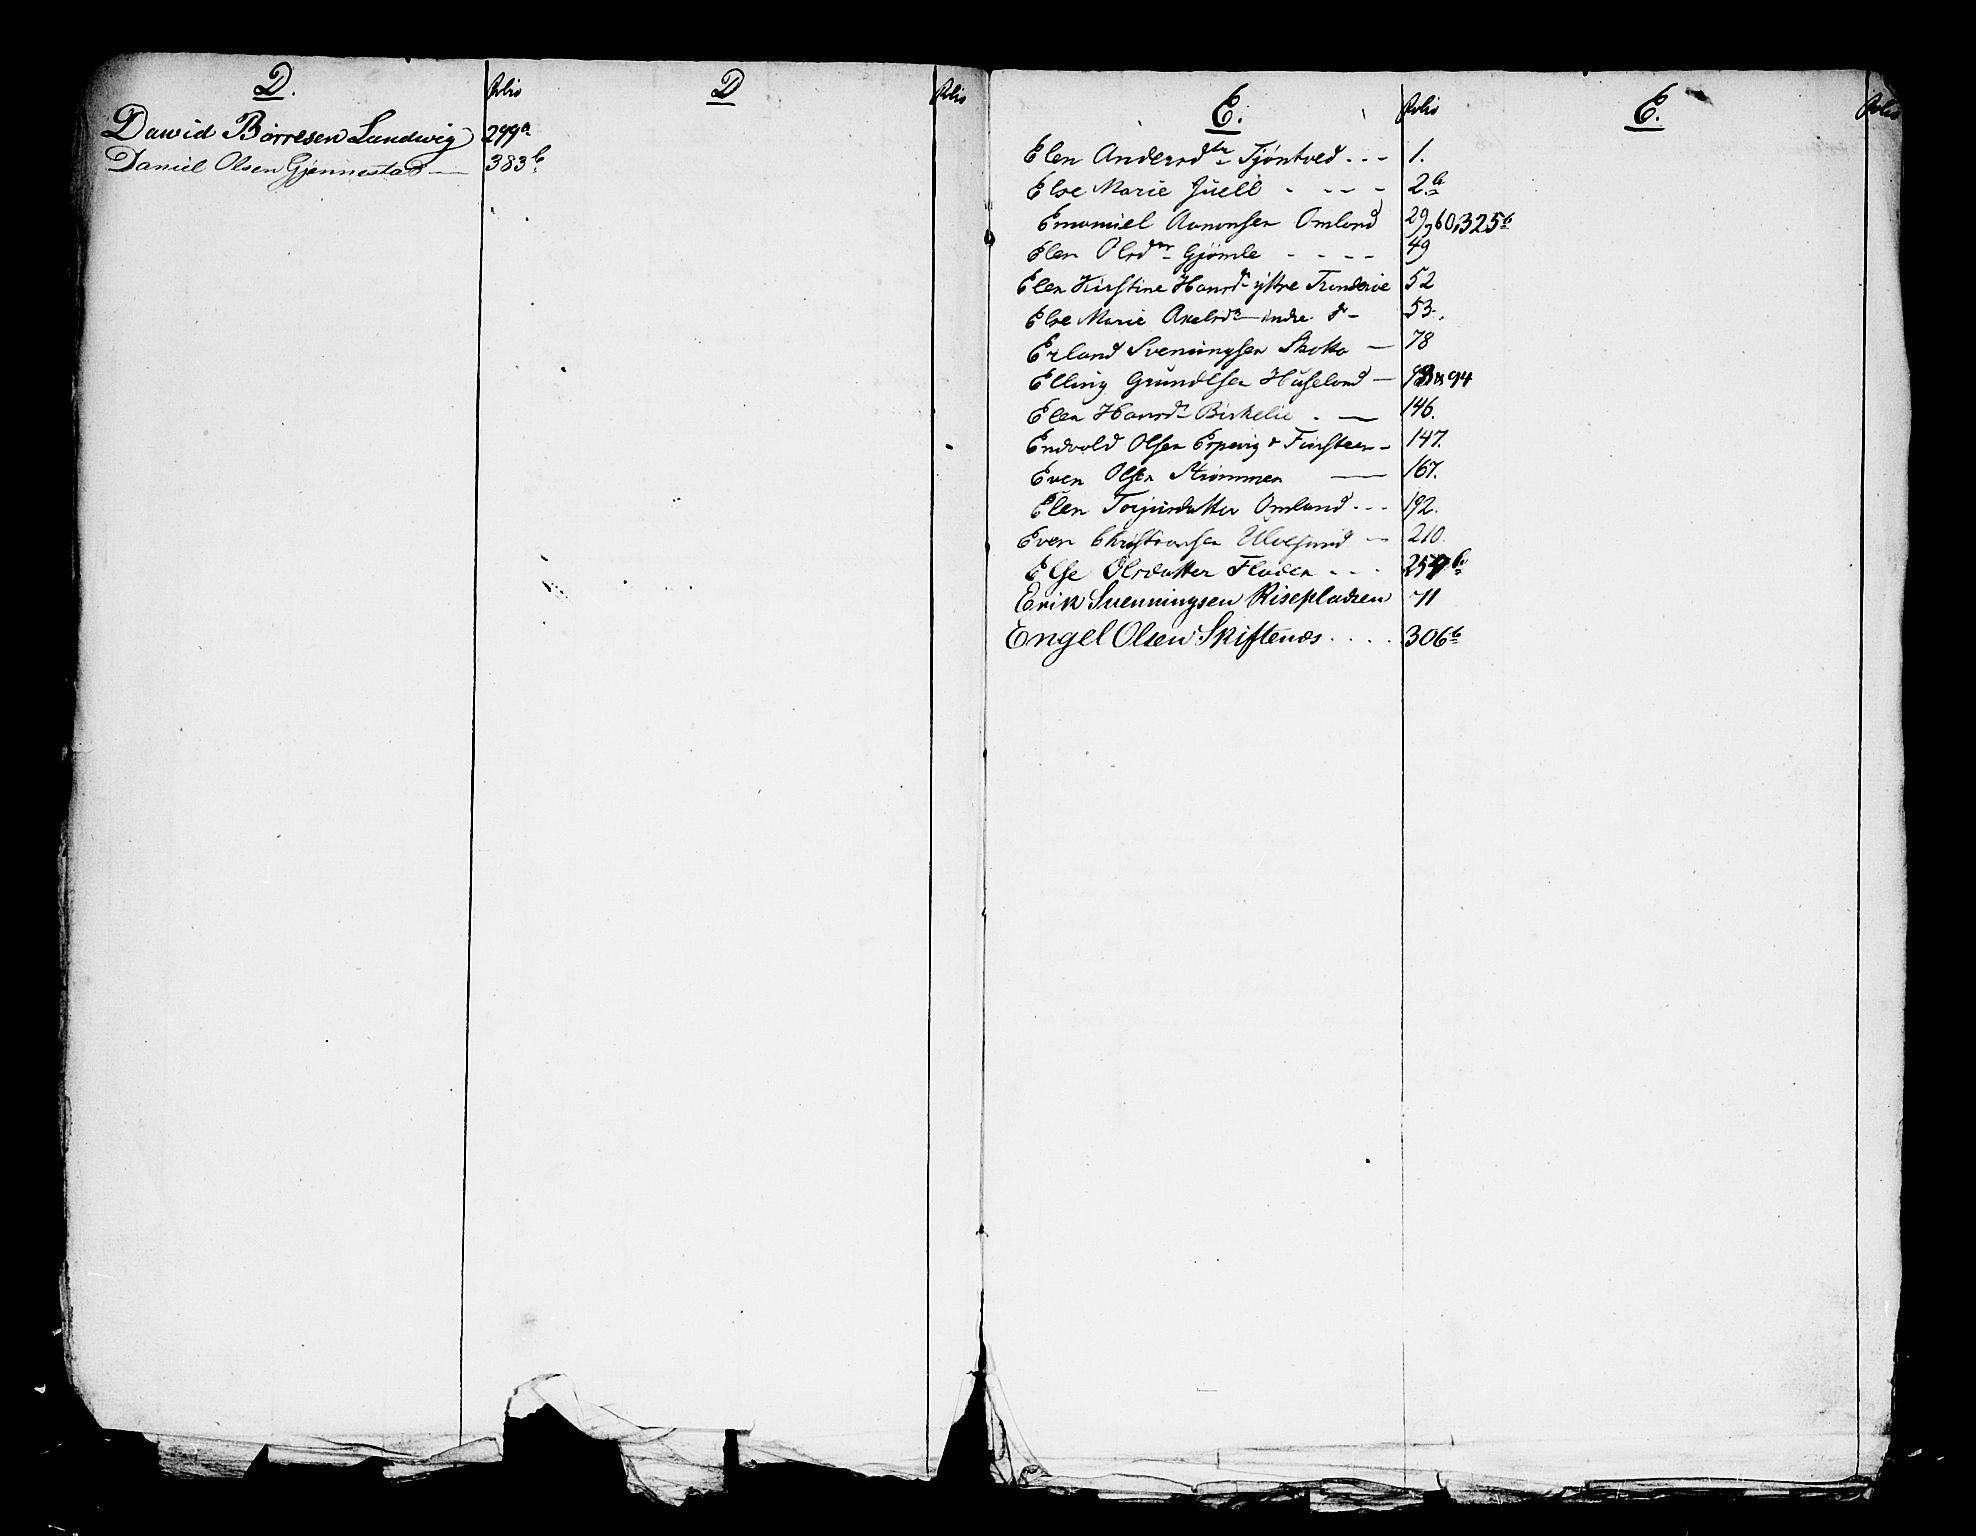 D. folio D folio
Dawid Börresen Sandwig 299a
Daniel Olsen Gjennestad 383b
E. folio E. folio
Elen Andersdtr Tjöntved 1.
Else Marie Juell 2.b
Emanuel Aanonsen Omland 29, 60, 325b
Elen Olsdtr Gjömle 49
Elen Kirstine Hansdr ÿttre 52
Else Marie Axelsdr indre do 53.
Erland Sveningsen 78
Elling Grundesen Huseland 94
Elen Hansdr Birkelie 146.
Endvold Olsen 147.
Even Olsen Strömmen 167.
Elen Torjusdatter Omland 192.
Even Christiansen Ulvesund 210.
Else Olsdatter Fladen b
Erik Svenningsen Risepladsen 711
Engel Olsen Skiftenæs 306b